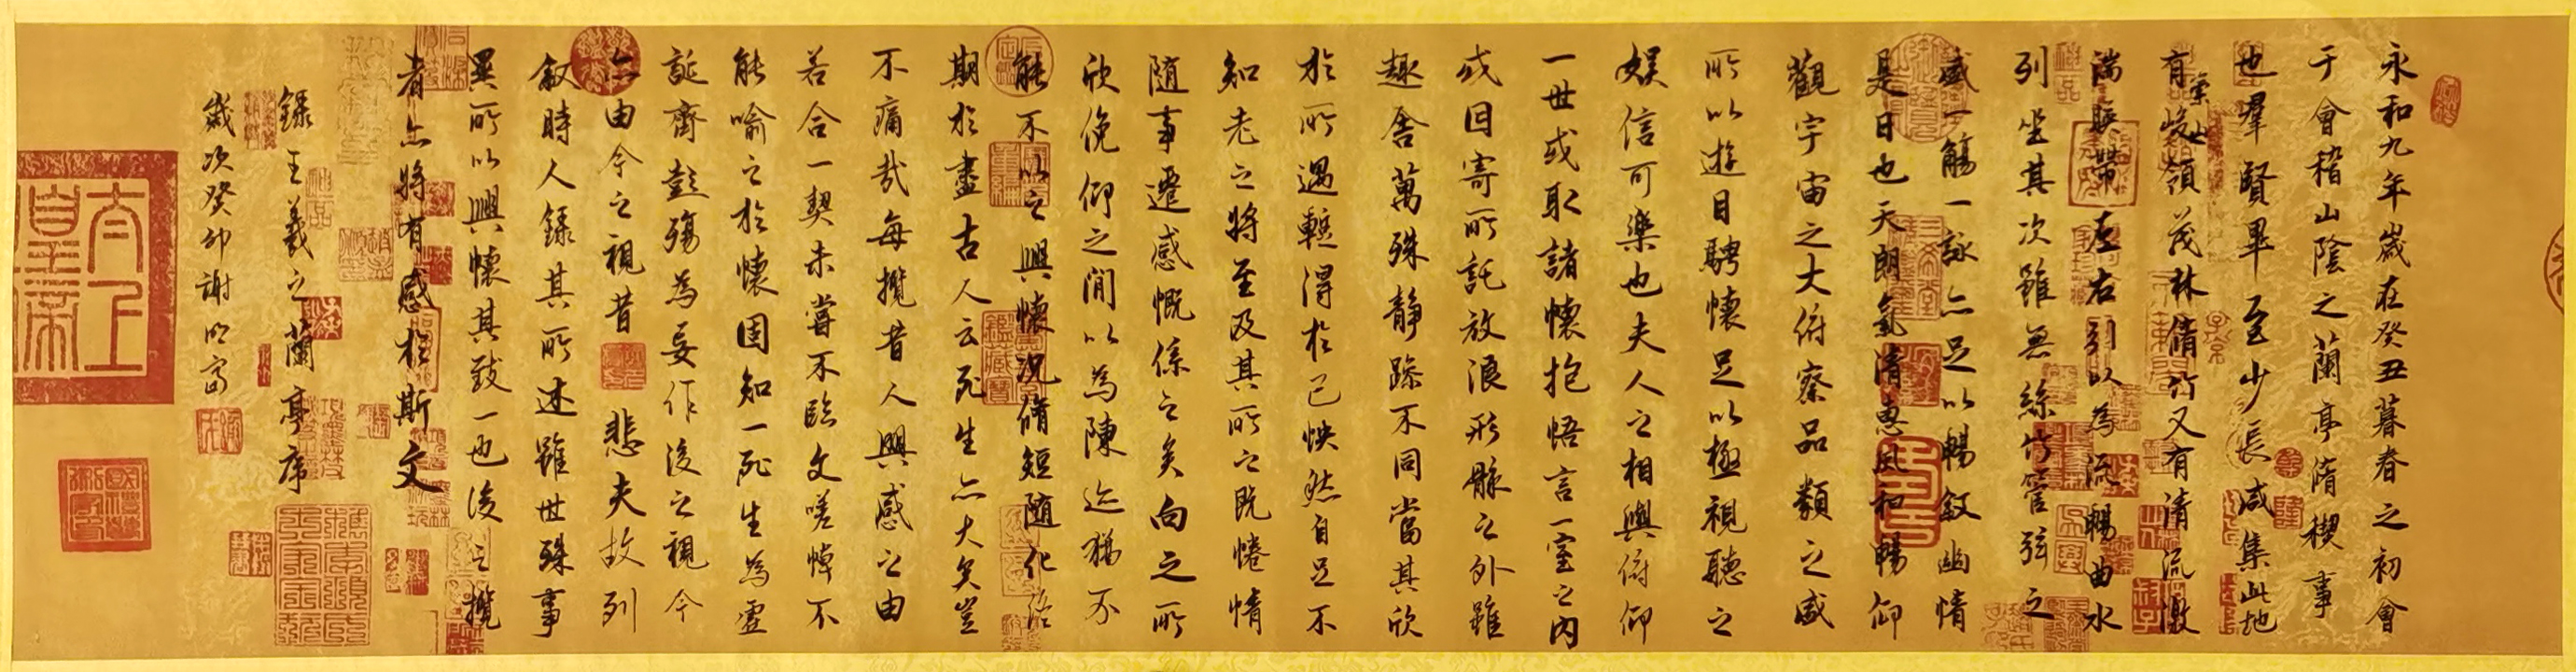 永和九年歲在癸丑暮春之初會
于會稽山陰之蘭亭脩禊事
也羣賢畢至少長咸集此地
有崇山峻領茂林脩竹又有清流激
湍暎帶左右引以為流觴曲水
列坐其次雖無絲竹管弦之
盛一觴一詠亦足以暢敘幽情
是日也天朗氣清惠風和暢仰
觀宇宙之大俯察品類之盛
所以遊目騁懷足以極視聽之
娛信可樂也夫人之相與俯仰
一世或取諸懷抱悟言一室之內
或因寄所託放浪形骸之外雖
趣舍萬殊靜躁不同當其欣
於所遇蹔得於己怏然自足不
知老之將至及其所之既惓情
隨事遷感慨係之矣向之所
欣俛仰之閒以為陳迹猶不
能不以之興懷況脩短隨化終
期於盡古人云死生亦大矣豈
不痛哉每攬昔人興感之由
若合一契未嘗不臨文嗟悼不
能喻之於懷固知一死生為虛
誕齊彭殤為妄作後之視今
亦由今之視昔 悲夫故列
敘時人錄其所述雖世殊事
異所以興懷其致一也後之攬
者亦將有感於斯文
錄王羲之蘭亭序
歲次癸卯謝明富
太上皇帝